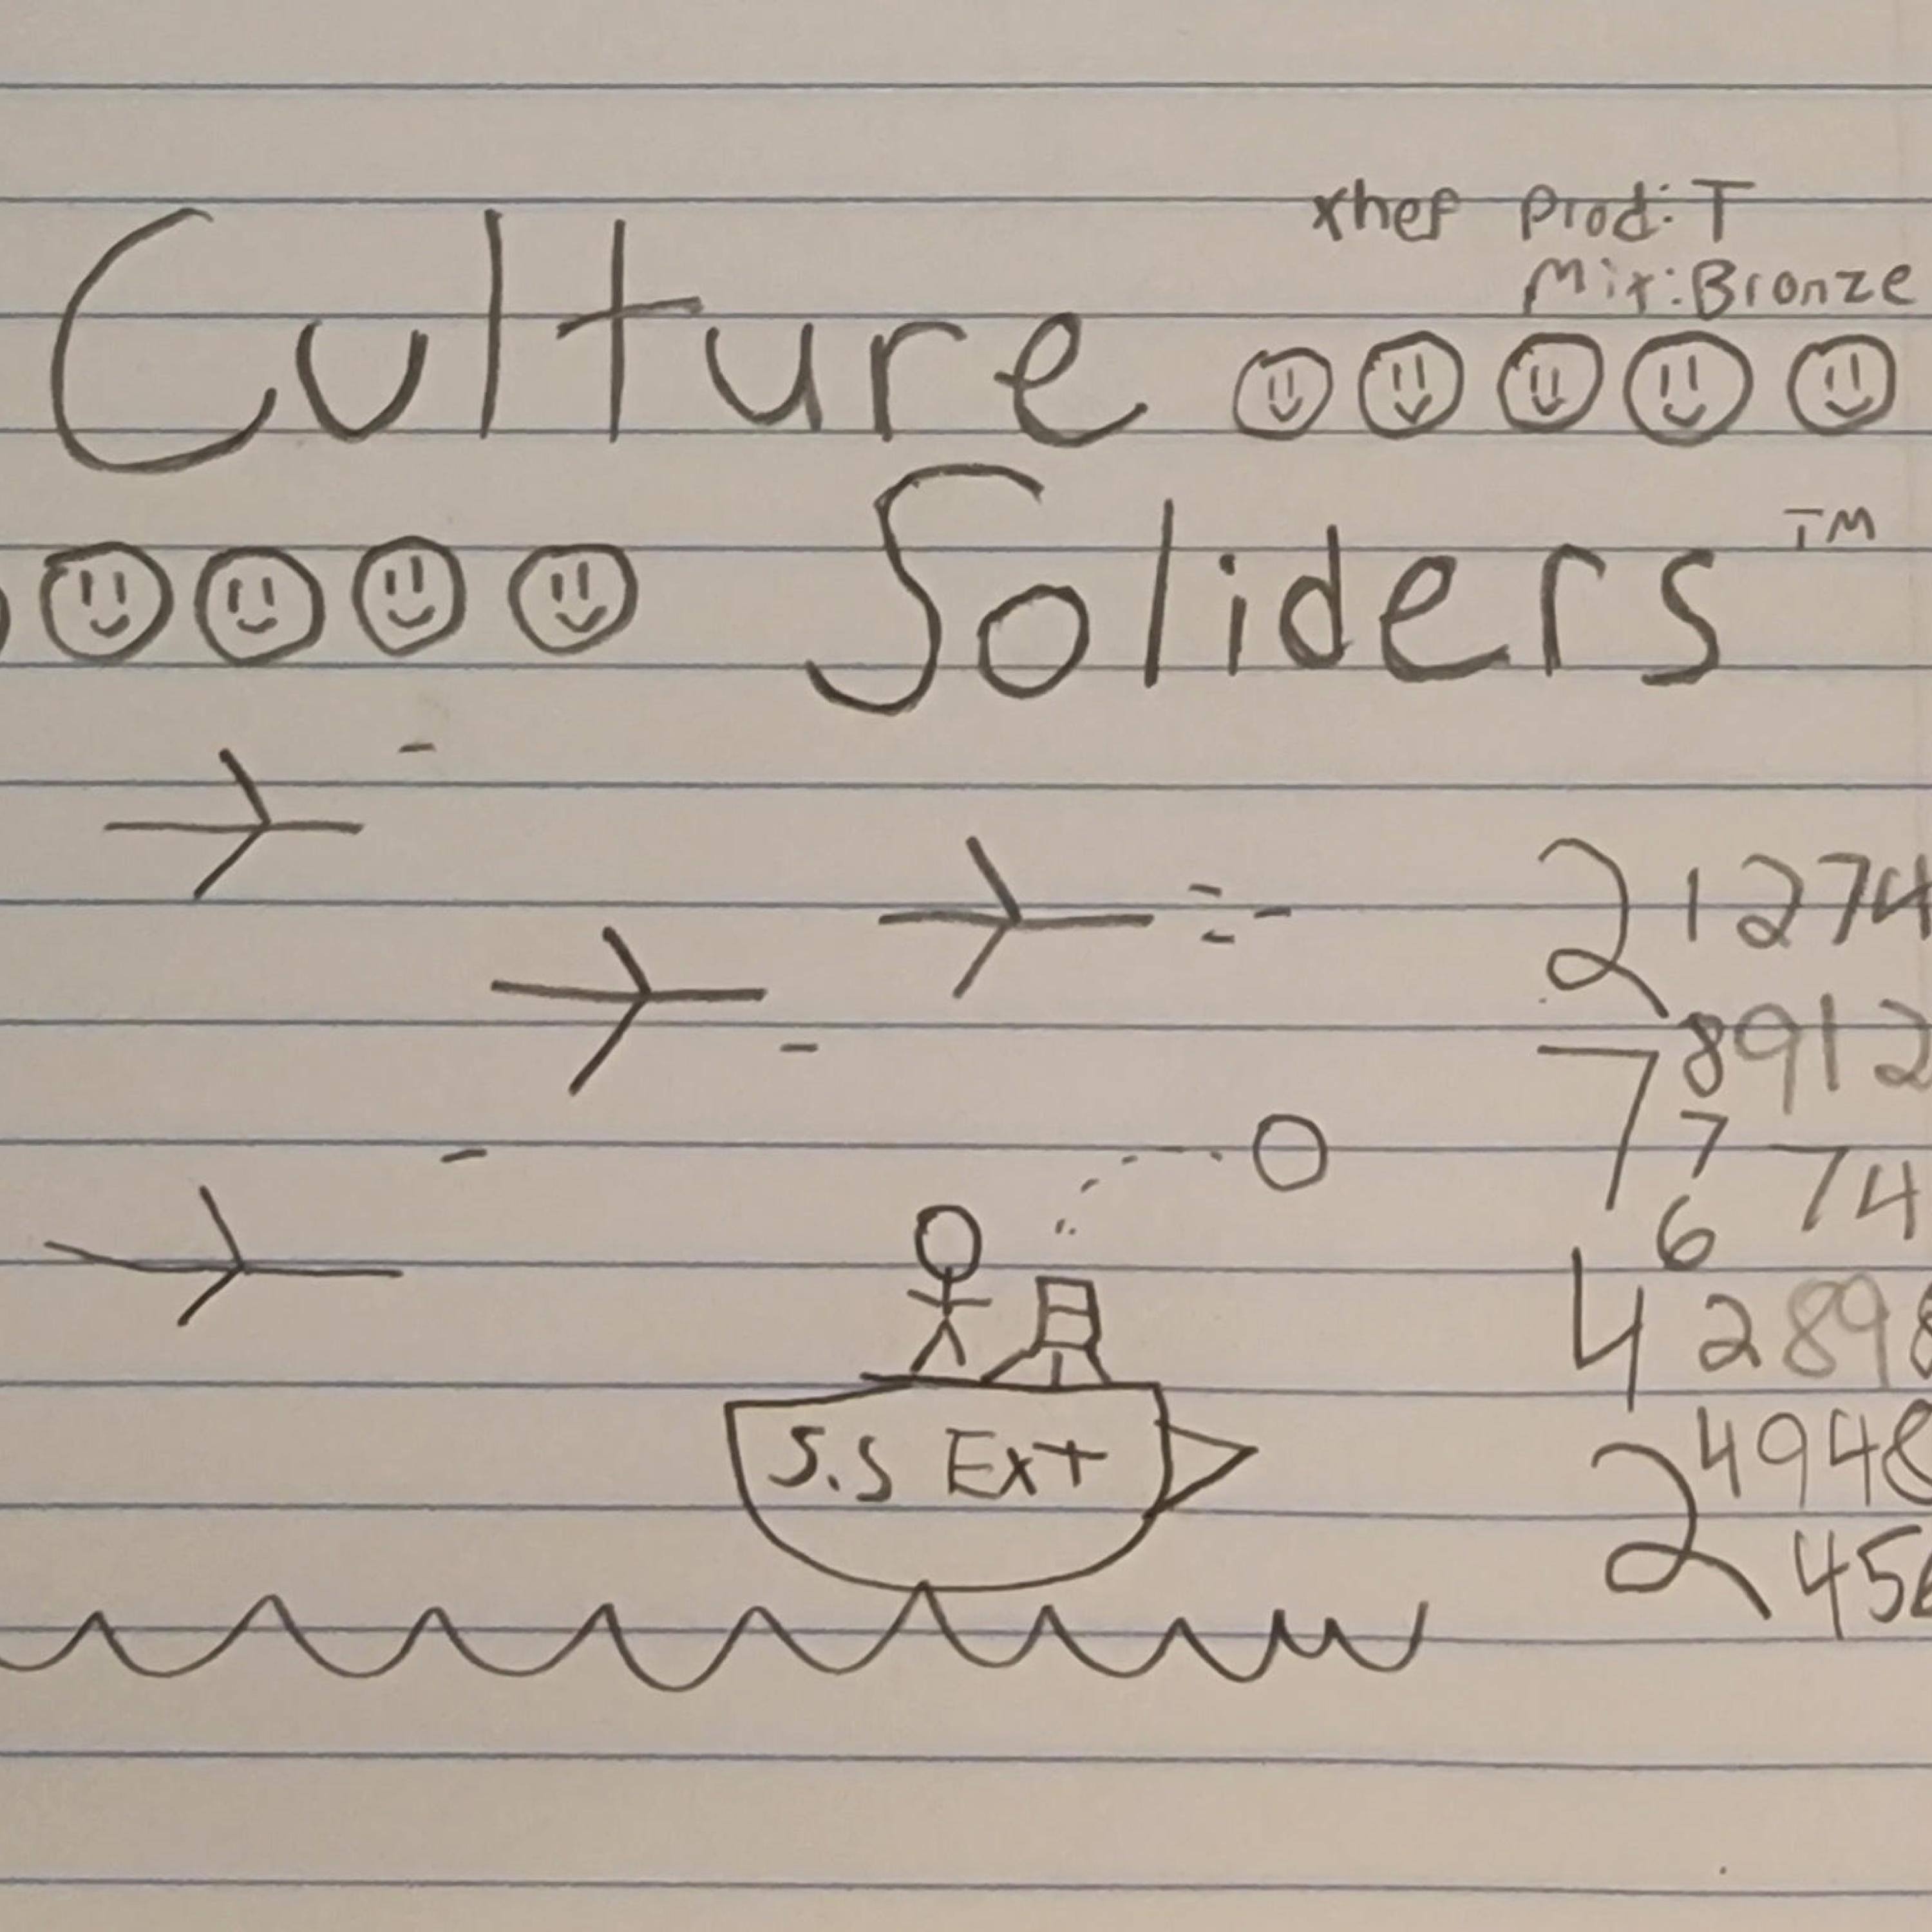 xhef Prod: T
Mix: Bronze
Culture
Soliders™
2 1274
8912
7 7
74
6
4 2898
4948
2 456
S.S Ext